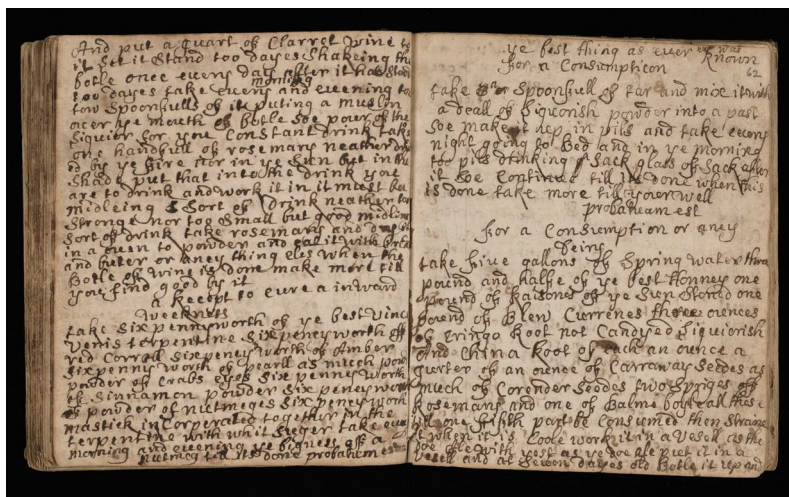 And put a quart of Clarret wine to
it Let it Stand too dayes Shakeing the
botle once every day after it has Stood
morning
too dayes take every and evening to
tow Spoonfulls of it puting a muslen
over ye mouth of botle Soe pouer of the
liquier for your Constant drink take
one handfull of rosemary neather dry
ed by ye fire nor in ye Sun but in the
Shade put that into the drink you
are to drink and work it in it must be
midleing Sort of drink neather too
Stronge nor too Small but good midling
Sort of drink take rosemary and dry it
in a oven to powder and eat it with bread
and buter or aney thing eles when the
Botle of wine is done make more till
you find good by it
a Receipt to cure a inward
weeknes
take Six pennyworth of ye best Vinc
Venis terpentine Six peneyworth of
red Corrall Six peneyworth of Amber
Sixpenny worth of pearll as much pow
powder of Crabs eyes Six penney worth
of Sinnamon powder Six peneyworth
of powder of nutmeges Six peneyworth
mastick in Corperated together in the
terpentine with whit Sueger take every
morning and evening ye bigness off a
nutmeg till its done probatum est
ye best thing as ever was
known
for a Consumption
62
take Spoonfull of tar and mix it with
a deall of liquorish powder into a past
Soe make it up in pils and take every
night going to Bed and in ye morning
too pils drinking Sack glass of Sack after
it Soe Continue till its done when this
is done take more till your well
probatum est
for a Consumption or aney
Seins
take five gallons of Spring water three
pound and halfe of ye best Honney one
pound of Raisons of ye Sun Stoned one
pound of Blew Currenes three ounces
of Eringo Root not Candyed liquiorish
and China Root of each an ounce a
qurter of an ounce of Carraway Seedes as
much of Corender Seedes two Spriges off
Rosemary and one of Balme boyle all these
till one fifth part be Consumed then Straine
it when it is Coole work it in a Vesell as the
doe Ale with yest as ye doe ale put it in a
vesell and at Seven dayes old Botle it up and